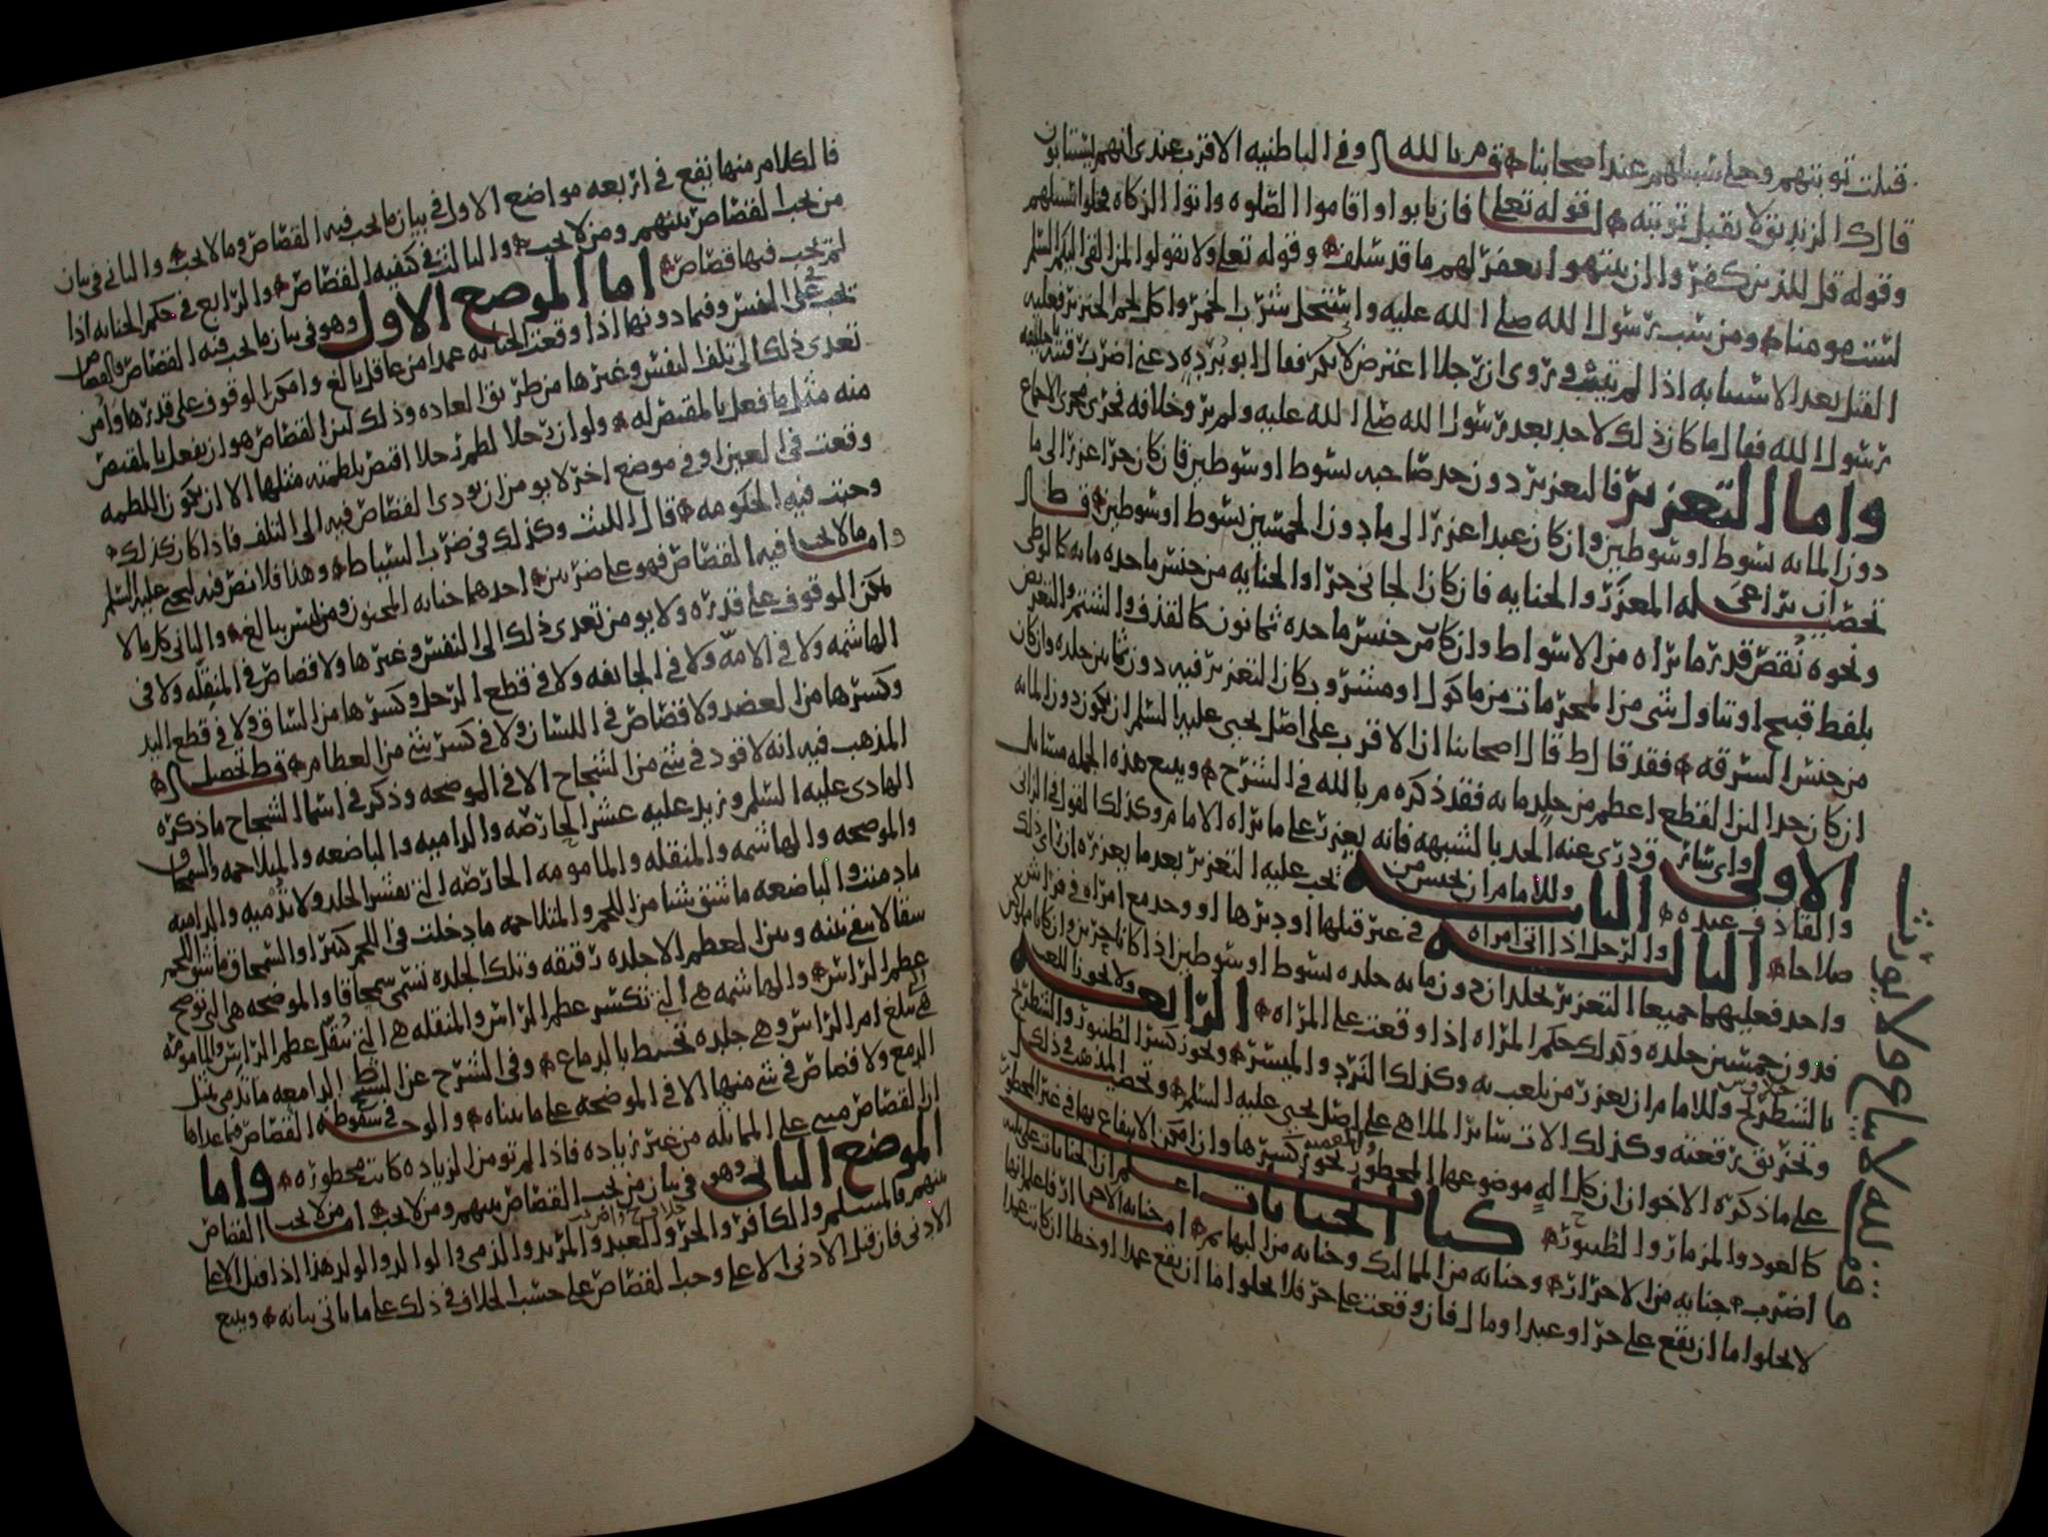 قبلت توبتهم وخلي سبيلهم عند اصحابنا قال م بالله وفي الباطنيه الاقرب عندي انهم يستتابون
قال المزيد بالله لا تقبل توبته لقوله تعلى فان تابوا واقاموا الصلوه واتوا الزكاه فخلوا سبيلهم
وقوله قل للذين كفروا ان ينتهوا يغفر لهم ما قد سلف وقوله تعلى ولا تقولوا لمن القى اليكم السلم
لست مومنا ومن سب رسول الله صلى الله عليه واستحل شرب الخمر واكل لحم الخنزير فعليه
القتل بعد الاستتابه اذا لم يتب وروي ان رجلا اعترض لابي بكر فقال ابو برده دعني اضرب عنقه يا خليفه
رسول الله فقال ما كان ذلك لاحد بعد رسول الله صلى الله عليه ولم ير وخلافه فجرى مجرى الاجماع
واما التعزير فالتعزير دون حد صاحبه بسوط او سوطين فان كان حرا عزر الى ما
دون المايه بسوط او سوطين وان كان عبدا عزر الى ما دون الخمسين بسوط او سوطين
يراعى له المعزر والجنايه فان كان الجاني حرا والجنايه من جنس ما حده مايه كالوطي
ونحوه نقص قدر ما يراه من الاسواط وان كان من جنس ما حده ثمانون كالقذف والشتم والتعريض
بلفظ قبيح او تناول شي من المحرمات من ماكول او مشروب كان التعزير فيه دون ثمانين جلده وان كان
من جنس السرقه فقد قال ط قال اصحابنا ان الاقرب على اصل يحيى عليه السلم ان يكون دون المايه
ان كان حدا لان القطع اعظم من جلد مايه فقد ذكره م بالله في الشرح ويتبع هذه الجمله مسايل
الاولى واي سارق درئ عنه الحد بالشبهه فانه يعزر على ما يراه الامام وكذلك القول في الزاني
والقاذف عبده الثانيه وللامام ان يحبس من يجب عليه التعزير بعد ما يعزره ان راى ذلك
صلاحا الثالثه والرجل اذا اتى امراه في غير قبلها او دبرها او وجد مع امراه في فراش
واحد فعليهما جميعا التعزير
فدون خمسين جلده وكذلك حكم المراه اذا وقعت على المراه الرابعه ولا يجوز اللعب
بالشطرنج وللامام ان يعزر من يلعب به وكذلك النرد والميسر ويجوز كسر الطنبور والشطرنج
وتحريق رقعته وكذلك الات ساير الملاهي على اصل يحيى عليه السلم وتحصيل المذهب في ذلك
على ما ذكره الاخوان ان كل اله موضوعها المحظور يجوز كسرها وان امكن الانتفاع بها في غير المحظور
كالعود والمزمار والطنبور كتاب الجنايات اعلم ان الجنايات على ثلاثه
اضرب جنايه من الاحرار وجنايه من المماليك وجنايه من البهايم
لا يخلوا ما ان يقع على حر او عبد او مال فان وقعت على حر فلا يخلوا ما ان يقع عمدا او خطا ان كانت عمدا
فالكلام منها يقع في اربعه مواضع الاول في بيان ما يجب فيه القصاص وما لا يجب والثاني في بيان
من يجب القصاص بينهم ومن لا يجب والثالث في كيفيه القصاص والرابع في حكم الجنايه اذا
لم يجب فيها قصاص اما الموضع الاول وهو في بيان ما يجب فيه القصاص
يجب في على النفس وفيما دونها اذا وقعت الجنايه عمدا من عاقل بالغ وامكن الوقوف على قدرها وامن
تعدي ذلك الى تلف النفس وغيرها من طريق العاده وذلك لان القصاص هو ان يفعل بالمقتص
منه مثل ما فعل بالمقتص له ولو ان رجلا لطم رجلا اقتص بلطمته مثلها الا ان يكون اللطمه
وقعت في العين او في موضع اخر لا يومن ان يودي القصاص فيه الى التلف فاذا كان كذلك
وجبت فيه الحكومه قال الليث وكذلك في ضرب السياط وهذا فلا نص فيه ليحيى عليه السلم
واما ما لا يجب فيه القصاص فهو على ضربين احدهما جنايه المجنون ومن ليس ببالغ والثاني كل ما لا
يمكن الوقوف على قدره ولا يومن تعدي ذلك الى النفس وغيرها ولا قصاص في المنقله ولا في
الهاشمه ولا في الامه ولا في الجايفه ولا في قطع الرجل وكسرها من الساق ولا في قطع اليد
وكسرها من العضد ولا قصاص في اللسان ولا في كسر شي من العظام ط تحصيل
المذهب فيه انه لا قود في شي من الشجاج الا في الموضحه وذكر في اسما الشجاج ما ذكره
الهادي عليه السلم ونزيد عليه عشر الحارصه والداميه والباضعه والمتلاحمه والسمحاق
والموضحه والهاشمه والمنقله والمامومه الحارصه التي تقشر الجلد ولا تدميه والداميه
ما دمت والباضعه ما شق شيا من اللحم والمتلاحمه ما دخلت في اللحم كثيرا والسمحاق ما شق اللحم
شقا لا يبقي بينه وبين العظم الا جلده رقيقه وتلك الجلده تسمى سمحاقا والموضحه هي التي توضح
عظم الراس والهاشمه هي التي تكسر عظم الراس والمنقله هي التي تنقل عظم الراس والمامومه
هي التي تبلغ ام الراس وهي جلده تحيط بالدماغ وفي الشرح عن ط الدامعه ما تدمى مثل
الدمع ولا قصاص في شي منها الا في الموضحه على ما بيناه والوجه في سقوط القصاص فيما عداها
ان القصاص مبني على المماثله من غير زياده فاذا لم تومن الزياده كانت محظوره واما
الموضع الثاني وهو في بيان من يجب القصاص بينهم ومن لا يجب اما من لا يجب القصاص
بينهم فالمسلم والكافر والحر والعبد والمرتد والذمي والوالد والولد هذا اذا قتل الاعلى
الادنى فان قتل الادنى الاعلى وجب القصاص على حسب الخلاف في ذلك على ما ياتي بيانه ويتبع
لله لا يباع ولا يورث